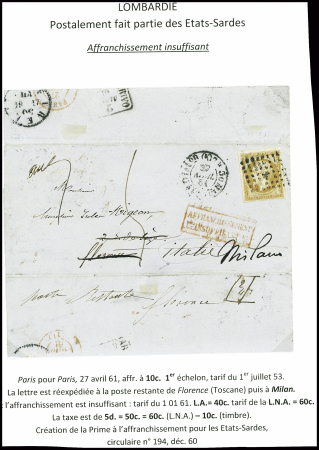 LOMBARDIE
Postalement fait partie des Etats-Sardes
Affranchissement insuffisant
Monsieur
Florence
Italie Milano
AFFRANCHISSEMENT
INSUFFISANT
poste Restante
florence
Paris pour Paris, 27 avril 61, affr. à 10c. 1er échelon, tarif du 1er juillet 53.
La lettre est réexpédiée à la poste restante de Florence (Toscane) puis à Milan.
: l'affranchissement est insuffisant : tarif du 1 01 61. L.A.= 40c. tarif de la L.N.A. = 60c.
La taxe est de 5d. = 50c. = 60c. (L.N.A.) – 10c. (timbre).
Création de la Prime à l'affranchissement pour les Etats-Sardes,
circulaire n° 194, déc. 60